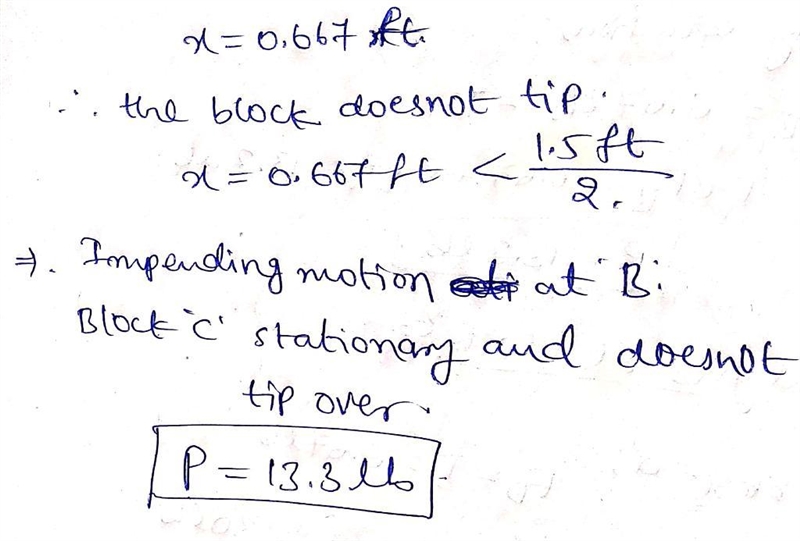 x = 0.667 ft.
∴ the block doesnot tip.
x = 0.667 ft < 1.5 ft / 2.
⇒. Impending motion at B.
Block 'C' stationary and doesnot
tip over.
P = 13.3 lb